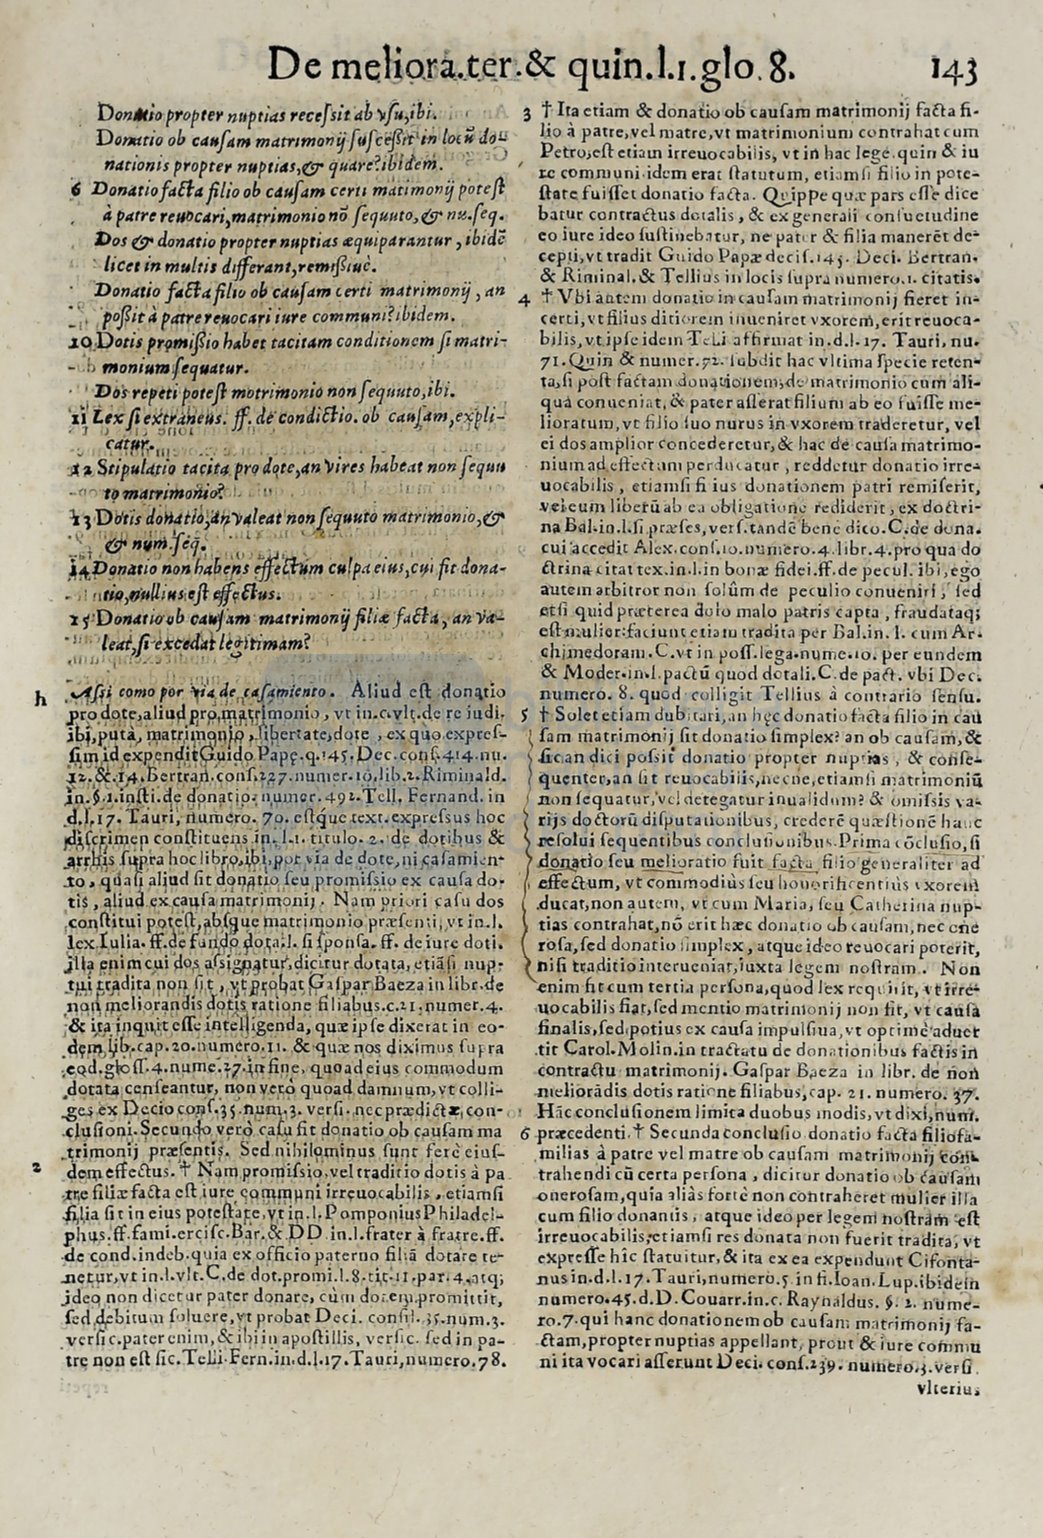 De meliora.ter.& quin.l.1.glo.8. 143
Donatio propter nuptias recessit ab vsu,ibi.
Donatio ob causam matrimonij successit in locū do-
nationis propter nuptias,& quare?ibidem.
6 Donatio facta filio ob causam certi matimonij potest
à patre reuocari,matrimonio nō sequuto,& nu.seq.
Dos & donatio propter nuptias æquiparantur, ibidē
licet in multis differant,remissiuè.
Donatio facta filio ob causam certi matrimonij, an
possit à patre reuocari iure communi?ibidem.
10 Dotis promissio habet tacitam conditionem si matri-
monium sequatur.
Dos repeti potest motrimonio non sequuto,ibi.
11 Lex si extraneus. ff. de condictio. ob causam,expli-
catur.
12 Stipulatio tacita pro dote,an vires habeat non sequu
to matrimonio?
13 Dotis donatio,an valeat non sequuto matrimonio,&
& num.seq.
14 Donatio non habens effectum culpa eius,cui fit dona-
tio,nullius est effectus.
15 Donatio ob causam matrimonij filiæ facta, an va-
leat,si excedat legitimam?
h Assi como por via de casamiento. Aliud est donatio
pro dote,aliud pro matrimonio, vt in.c.vlt.de re iudi.
ibi,puta, matrimonio, libertate,dote, ex quo expres-
sim id expendit Guido Pape.q.145.Dec.cons.414.nu.
12.&.14.Bertran.cons.227.numer.10.lib.2.Riminald.
in.§.1.insti.de donatio.numer.492.Tell. Fernand. in
d.l.17. Tauri, numero. 70. estque text.expressus hoc
discrimen constituens in. l.1. titulo. 2. de dotibus &
arrhis supra hoc libro,ibi,por via de dote,ni casamien-
to, quasi aliud sit donatio seu promissio ex causa do-
tis, aliud ex causa matrimonij. Nam priori casu dos
constitui potest,absque matrimonio præsenti,vt in.l.
lex.Iulia.ff.de fundo dotal.l. si sponsa.ff. de iure doti.
illa enim cui dos assignatur,dicitur dotata, etiāsi nup-
tui tradita non sit, vt probat Gaspar Baeza in libr.de
non meliorandis dotis ratione filiabus.c.21.numer.4.
& ita inquit esse intelligenda, quæ ipse dixerat in eo-
dem lib.cap.20.numero.11. & quæ nos diximus supra
eod.gloss.4.nume.27.in fine, quoad eius commodum
dotata censeantur, non verò quoad damnum,vt colli-
ges ex Decio cons.35.num.3. versi. nec prædictæ,con-
clusioni.Secundo verò casu fit donatio ob causam ma
trimonij præsentis. Sed nihilominus sunt ferè eius-
2 dem effectus. † Nam promissio,vel traditio dotis à pa
tre filiæ facta est iure communi irreuocabilis, etiamsi
filia sit in eius potestate,vt in.l.Pomponius Philadel-
phus.ff.fami.ercisc.Bar.& DD.in.l.frater à fratre.ff.
de cond.indeb.quia ex officio paterno filiā dotare te-
netur,vt in.l.vlt.C.de dot.promi.l.8.tit.11.par.4.atq;
ideo non dicetur pater donare, cùm dotem promittit,
sed debitum soluere,vt probat Deci. consil.35.num.3.
versic.pater enim,& ibi in apostillis, versic. sed in pa-
tre non est sic.Telli Fern.in.d.l.17.Tauri,numero.78.
3 † Ita etiam & donatio ob causam matrimonij facta fi-
lio à patre,vel matre,vt matrimonium contrahat cum
Petro,est etiam irreuocabilis, vt in hac lege.quin & iu
re communi idem erat statutum, etiamsi filio in pote-
state fuisset donatio facta. Quippe quæ pars esse dice
batur contractus dotalis, & ex generali consuetudine
eo iure ideo sustinebatur, ne pater & filia manerēt de-
cepti,vt tradit Guido Papæ decis.145. Deci. Bertran.
& Riminal.& Tellius in locis supra numero.1. citatis.
4 † Vbi autem donatio in causam matrimonij fieret in-
certi,vt filius ditiorem inueniret vxorem,erit reuoca-
bilis,vt ipse idem Teli affirmat in.d.l.17. Tauri. nu.
71.Quin & numer.72. subdit hac vltima specie reten-
ta,si post factam donationem,de matrimonio cum ali-
qua conueniat, & pater asserat filium ab eo fuisse me-
lioratum,vt filio suo nurus in vxorem traderetur, vel
ei dos amplior concederetur,& hac de causa matrimo-
nium ad effectum perducatur, reddetur donatio irre-
uocabilis, etiamsi fi ius donationem patri remiserit,
vel eum liberū ab ea obligatione rediderit, ex doctri-
na Bal.in.l.si.præses,vers.tandē bene dico.C.de dona.
cui accedit Alex.cons.10.numero.4.libr.4.pro qua do
ctrina citat tex.in.l.in bonæ fidei.ff.de pecul. ibi,ego
autem arbitror non solùm de peculio conueniri, sed
etsi quid præterea dolo malo patris capta, fraudataq;
est mulier:faciunt etiam tradita per Bal.in. l. cum Ar-
chimedoram.C.vt in poss.lega.nume.10. per eundem
& Moder.in.l.pactū quod dotali.C.de pact. vbi Deci.
numero. 8. quod colligit Tellius à contrario sensu.
5 † Solet etiam dubitari,an hęc donatio facta filio in cau
sam matrimonij sit donatio simplex? an ob causam,&
sic an dici possit donatio propter nuptias, & conse-
quenter,an sit reuocabilis,necne,etiamsi matrimoniū
non sequatur,vel detegatur inualidum? & omissis va-
rijs doctorū disputationibus, crederē quæstionē hanc
resolui sequentibus conclusionibus.Prima cōclusio,si
donatio seu melioratio fuit facta filio generaliter ad
effectum, vt commodiùs seu honorificentius vxorem
ducat,non autem, vt cum Maria, seu Catherina nup-
tias contrahat,nō erit hæc donatio ob causam,nec one
rosa,sed donatio simplex, atque ideo reuocari poterit,
nisi traditio interueniat,iuxta legem nostram. Non
enim fit cum tertia persona,quod lex requirit, vt irre-
uocabilis fiat,sed mentio matrimonij non fit, vt causa
finalis,sed potius ex causa impulsiua,vt optimè aduer
tit Carol.Molin.in tractatu de donationibus factis in
contractu matrimonij. Gaspar Baeza in libr. de non
meliorādis dotis ratione filiabus,cap. 21. numero. 37.
Hāc conclusionem limita duobus modis,vt dixi,num.
6 præcedenti.† Secunda conclusio donatio facta filiofa-
milias à patre vel matre ob causam matrimonij con-
trahendi cū certa persona, dicitur donatio ob causam
onerosam,quia aliàs fortè non contraheret mulier illa
cum filio donantis, atque ideo per legem nostram est
irreuocabilis,etiamsi res donata non fuerit tradita, vt
expresse hîc statuitur,& ita ex ea expendunt Cifonta-
nus in.d.l.17.Tauri,numero.5. in fi.Ioan.Lup.ibidem
numero.45.d.D.Couarr.in.c. Raynaldus. §. 2. nume-
ro.7.qui hanc donationem ob causam matrimonij fa-
ctam,propter nuptias appellant, prout & iure commu
ni ita vocari asserunt Deci. cons.239. numero.3.versi.
vlterius,